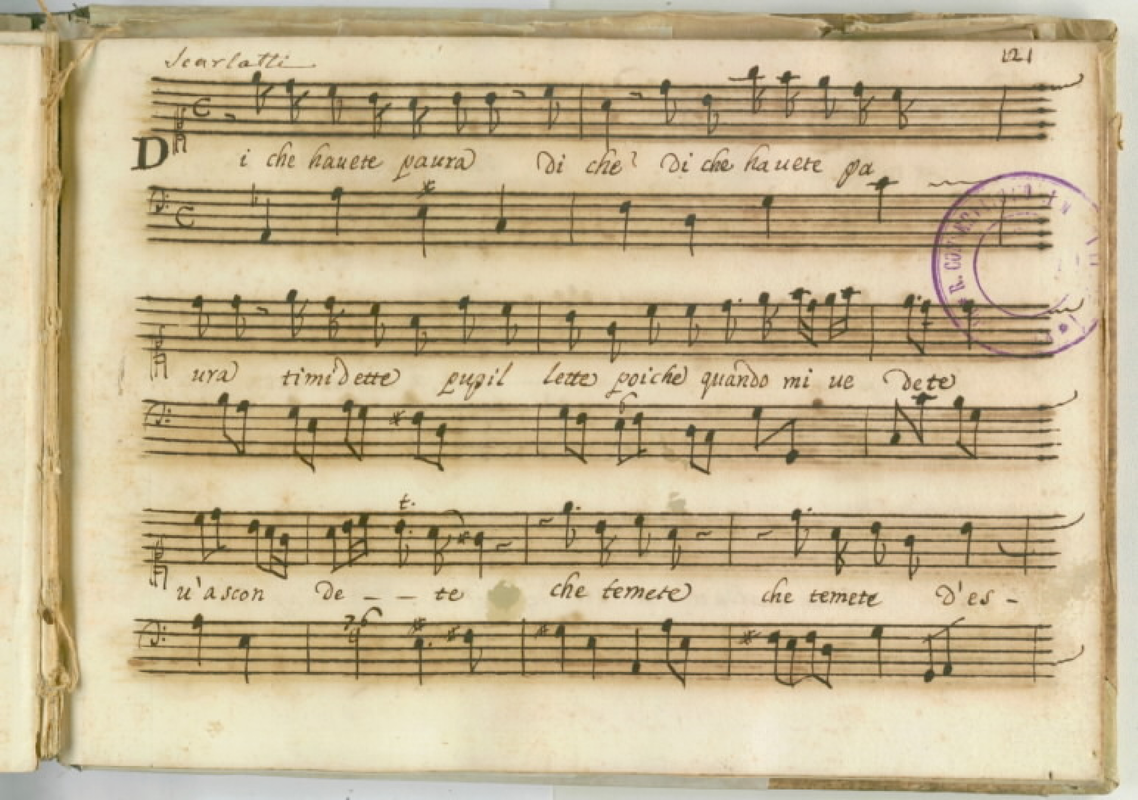 Scarlatti
121
Di che hauete paura di che? di che hauete pa
ura timidette pupil lette poiche quando mi ue dete
t.
u'ascon de - - te che temete che temete d'es -